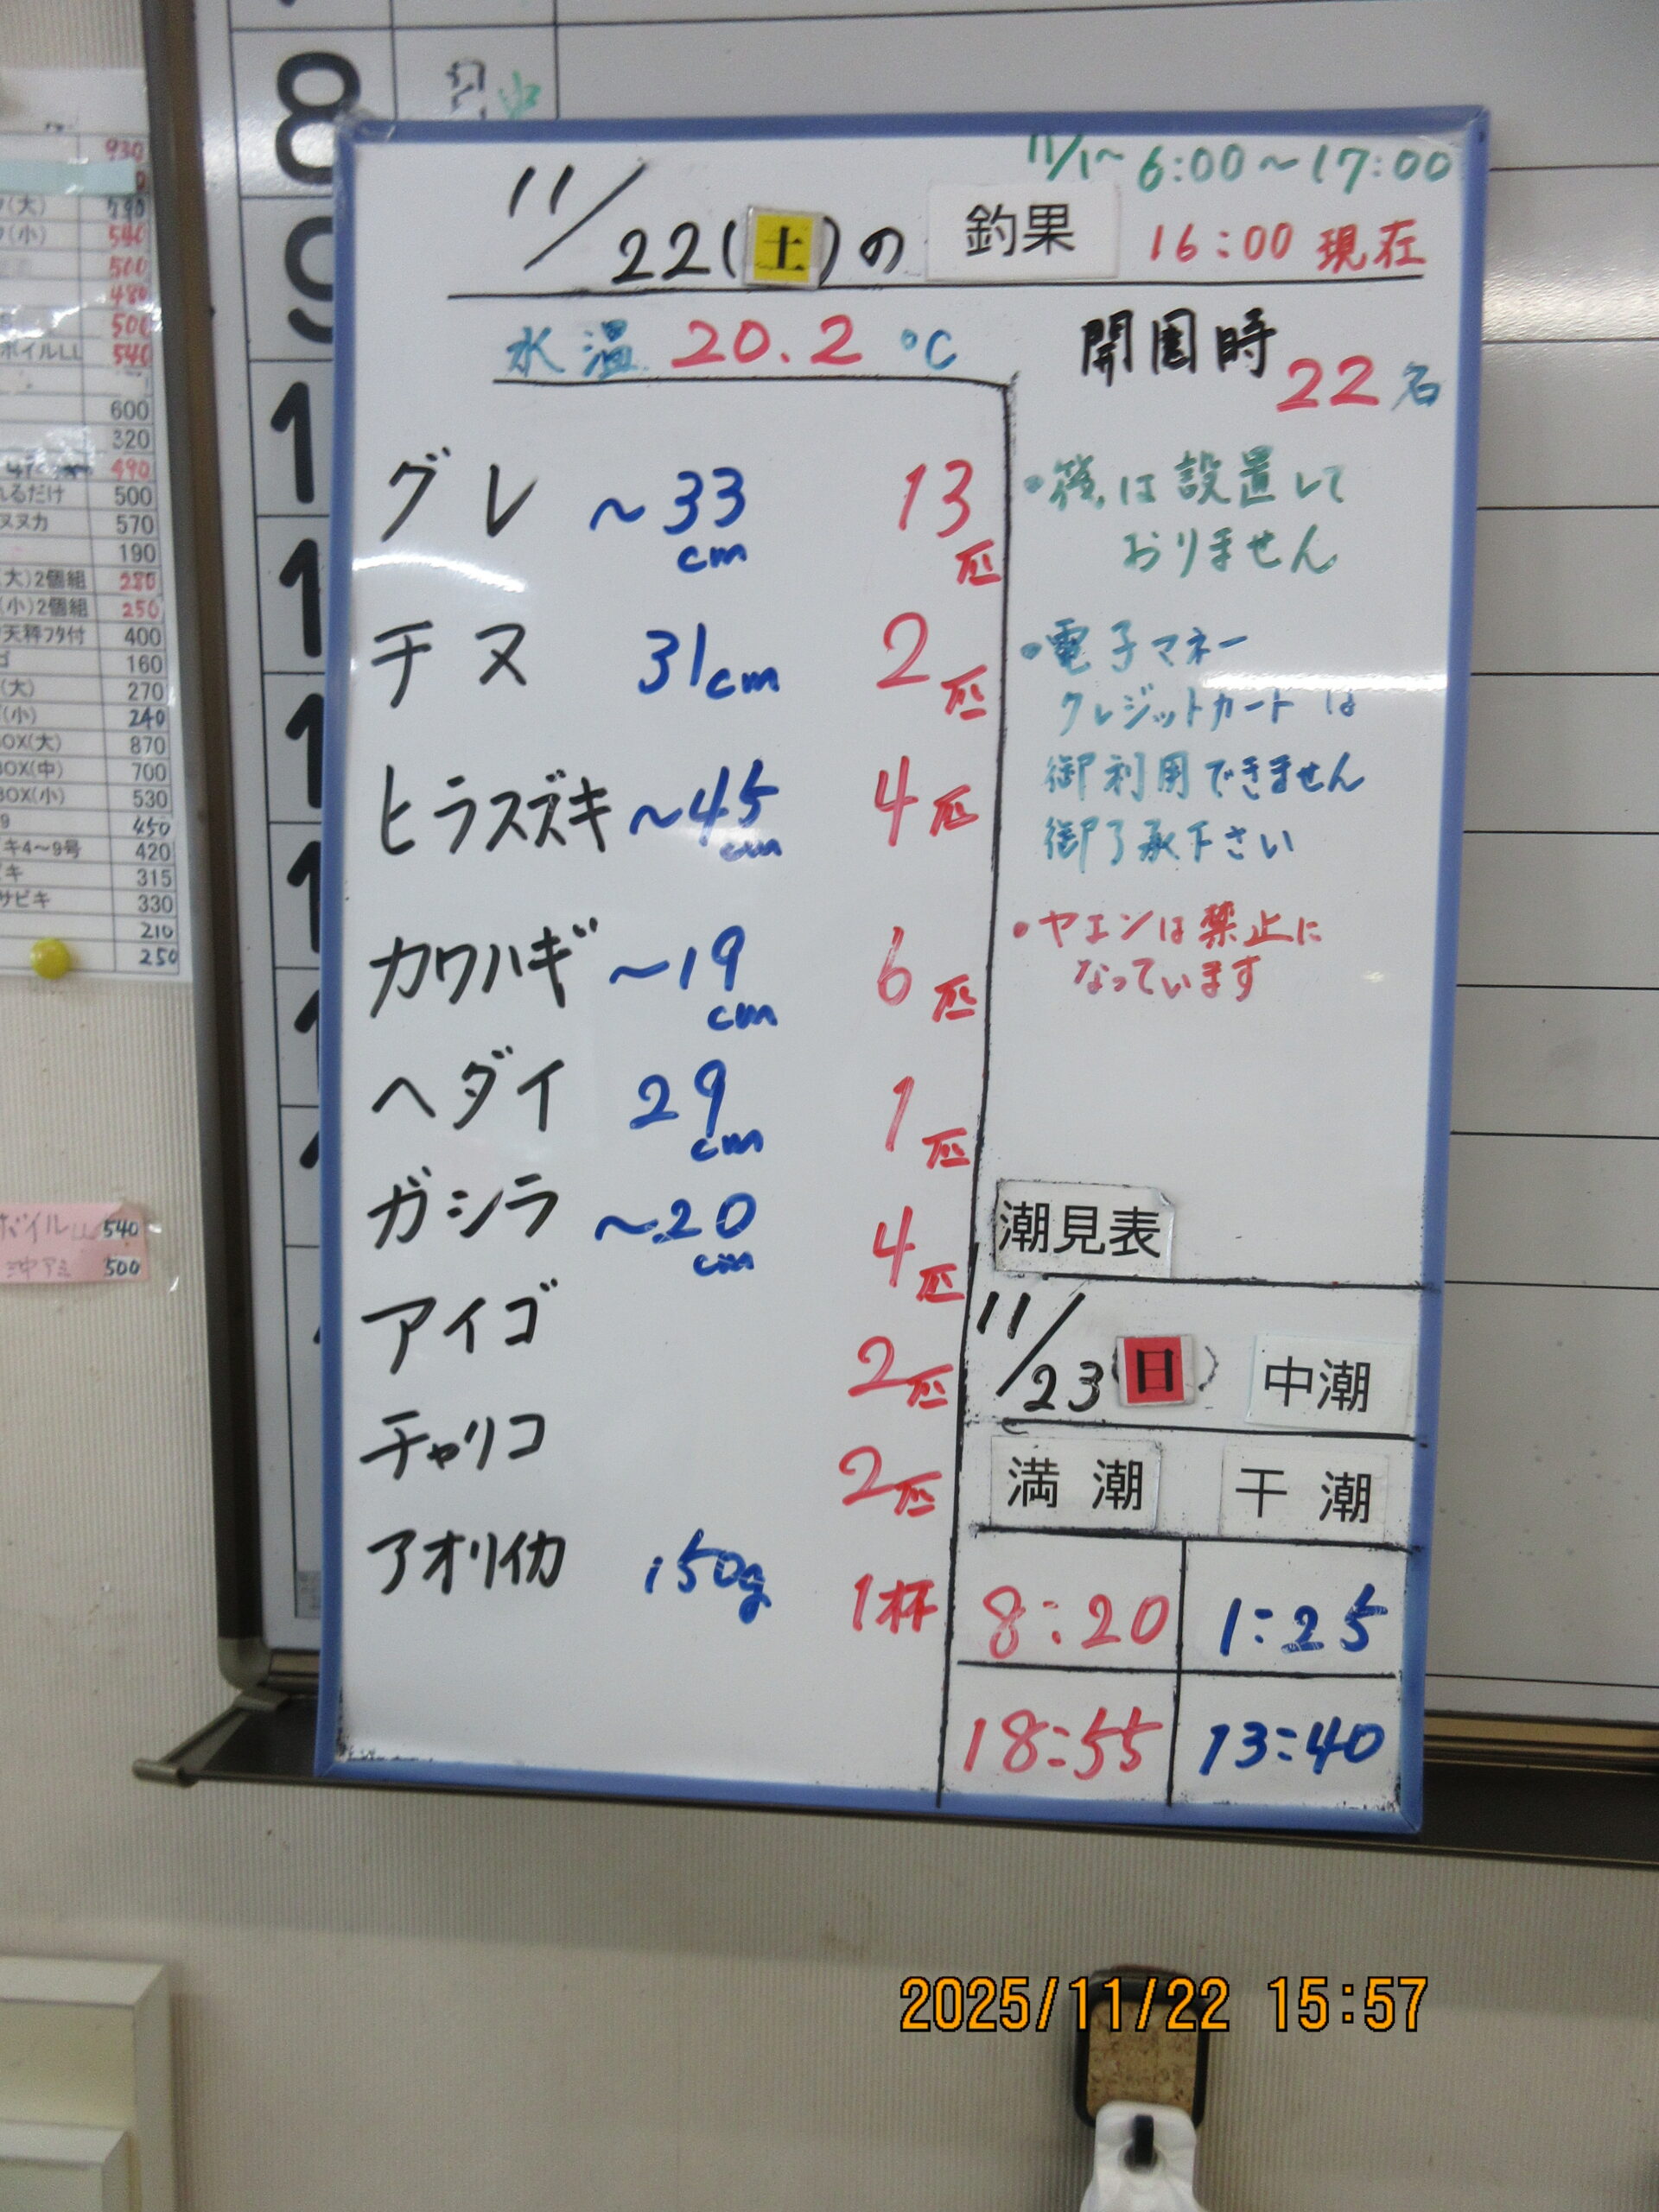 8
9
11/1~ 6:00~17:00
11/22(土)の 釣果 16:00 現在
水温 20.2 ℃
開園時 22名
グレ ~33cm 13匹
チヌ 31cm 2匹
ヒラスズキ ~45cm 4匹
カワハギ ~19cm 6匹
ヘダイ 29cm 1匹
ガシラ ~20cm 4匹
アイゴ 2匹
チャリコ 2匹
アオリイカ 150g 1杯
・筏は設置して
おりません
・電子マネー
クレジットカートは
御利用できません
御了承下さい
・ヤエンは禁止に
なっています
潮見表
11/23(日) 中潮
満潮 干潮
8:20 1:25
18:55 13:40
930
(大) 790
(小) 540
500
480
500
ボイルLL 540
600
320
490
れるだけ 500
ヌカ 570
190
(大)2個組 280
(小)2個組 250
天秤フタ付 400
ゴ 160
(大) 270
(小) 240
BOX(大) 870
BOX(中) 700
BOX(小) 530
9 450
キ4~9号 420
ビキ 315
サビキ 330
210
250
ボイルLL 540
沖アミ 500
2025/11/22 15:57